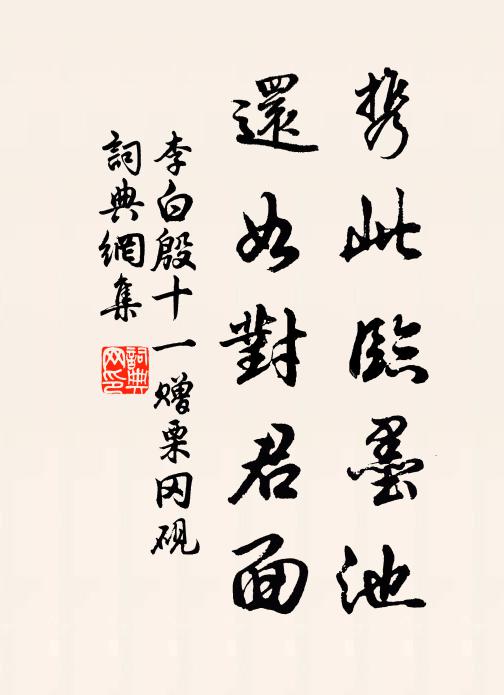 携此臨墨池
還如對君面
李白殷十一赠栗冈砚
詞典網集
詞典
网印